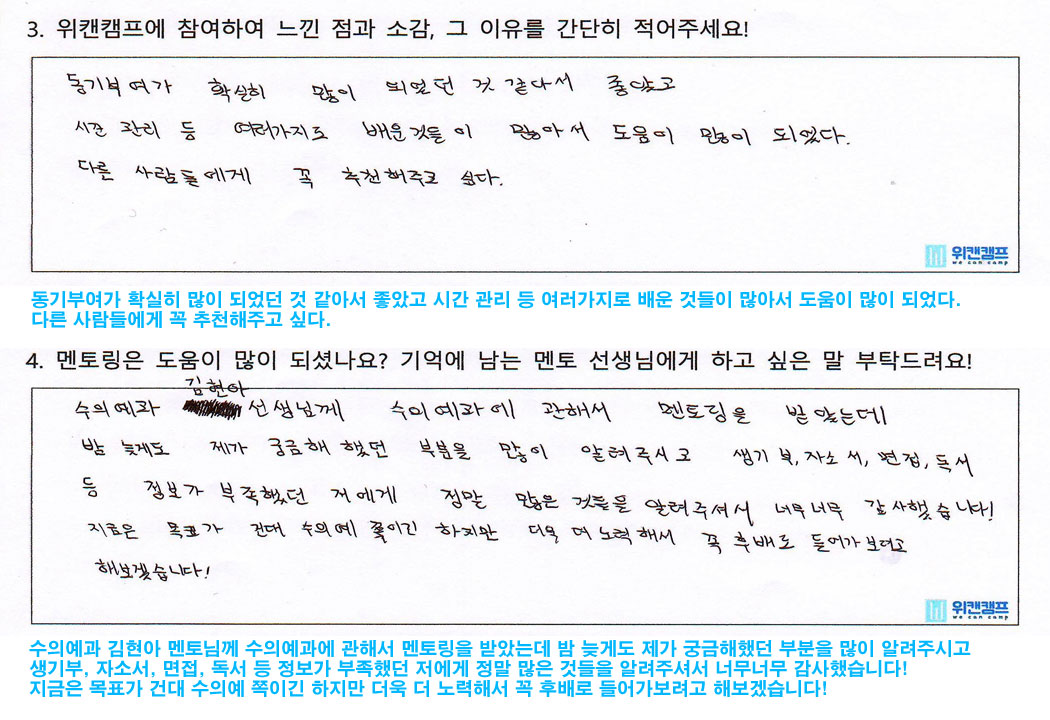 3. 위캔캠프에 참여하여 느낀 점과 소감, 그 이유를 간단히 적어주세요!
동기부여가 확실히 많이 되었던 것 같아서 좋았고
시간 관리 등 여러가지로 배운것들이 많아서 도움이 많이 되었다.
다른 사람들에게 꼭 추천해주고 싶다.
위캔캠프
we can camp
동기부여가 확실히 많이 되었던 것 같아서 좋았고 시간 관리 등 여러가지로 배운 것들이 많아서 도움이 많이 되었다.
다른 사람들에게 꼭 추천해주고 싶다.
4. 멘토링은 도움이 많이 되셨나요? 기억에 남는 멘토 선생님에게 하고 싶은 말 부탁드려요!
김현아
수의예과 선생님께 수의예과에 관해서 멘토링을 받았는데
밤 늦게도 제가 궁금해 했던 부분을 많이 알려주시고 생기부, 자소서, 면접, 독서
등 정보가 부족했던 저에게 정말 많은 것들을 알려주셔서 너무너무 감사했습니다!
지금은 목표가 건대 수의예 쪽이긴 하지만 더욱 더 노력해서 꼭 후배로 들어가보려고
해보겠습니다!
위캔캠프
we can camp
수의예과 김현아 멘토님께 수의예과에 관해서 멘토링을 받았는데 밤 늦게도 제가 궁금해했던 부분을 많이 알려주시고
생기부, 자소서, 면접, 독서 등 정보가 부족했던 저에게 정말 많은 것들을 알려주셔서 너무너무 감사했습니다!
지금은 목표가 건대 수의예 쪽이긴 하지만 더욱 더 노력해서 꼭 후배로 들어가보려고 해보겠습니다!